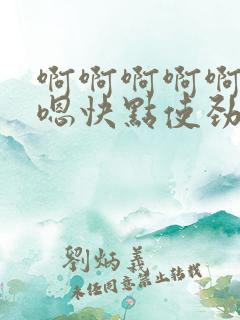 啊啊啊啊啊
嗯快點使劲
劉炳義
未经同意禁止转载